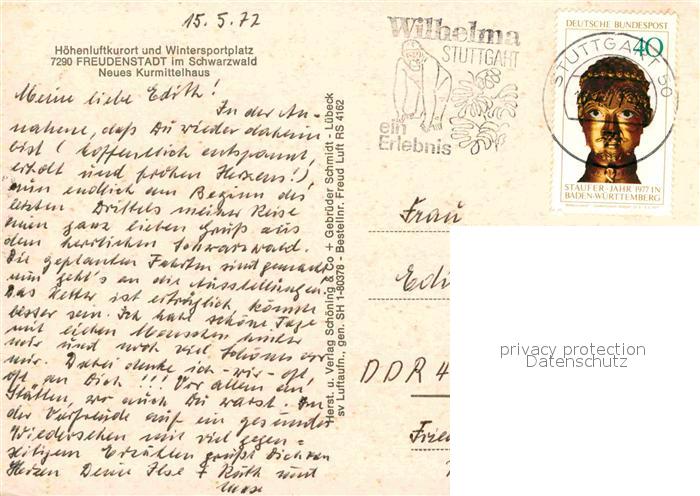 15.5.77
Höhenluftkurort und Wintersportplatz
7290 FREUDENSTADT im Schwarzwald
Neues Kurmittelhaus
Meine liebe Edith!
In der An-
nahme, daß Du wieder daheim
bist (hoffentlich entspannt,
erholt und frohen Herzens!)
nun endlich am Beginn des
letzten Drittels meiner Reise
einen ganz lieben Gruß aus
dem herrlichen Schwarzwald.
Die geplanten Fahrten sind gemacht
nun geht's an die Ausstellungen.
Das Wetter ist erträglich könnte
besser sein. Ich habe schöne Tage
mit lieben Menschen hinter
mir und noch viel Schönes vor
mir. Dabei denke ich - wir - oft,
oft an Dich!!! Vor allem an
Stätten, wo auch Du warst. In
der Vorfreude auf ein gesundes
Wiedersehen mit viel gegen-
seitigem Erzählen grüßt Dich von
Herzen Deine Ilse + Ruth und
Herst. u. Verlag Schöning & Co + Gebrüder Schmidt - Lübeck
sv Luftaufn., gen. SH 1-80378 - Bestellnr. Freud Luft RS 4162
Wilhelma
STUTTGART
ein
Erlebnis
DEUTSCHE BUNDESPOST
40
STUTTGART 50
STAUFER-JAHR 1977 IN
BADEN-WÜRTTEMBERG
Frau
Edi
DDR 4
Frie
privacy protection
Datenschutz